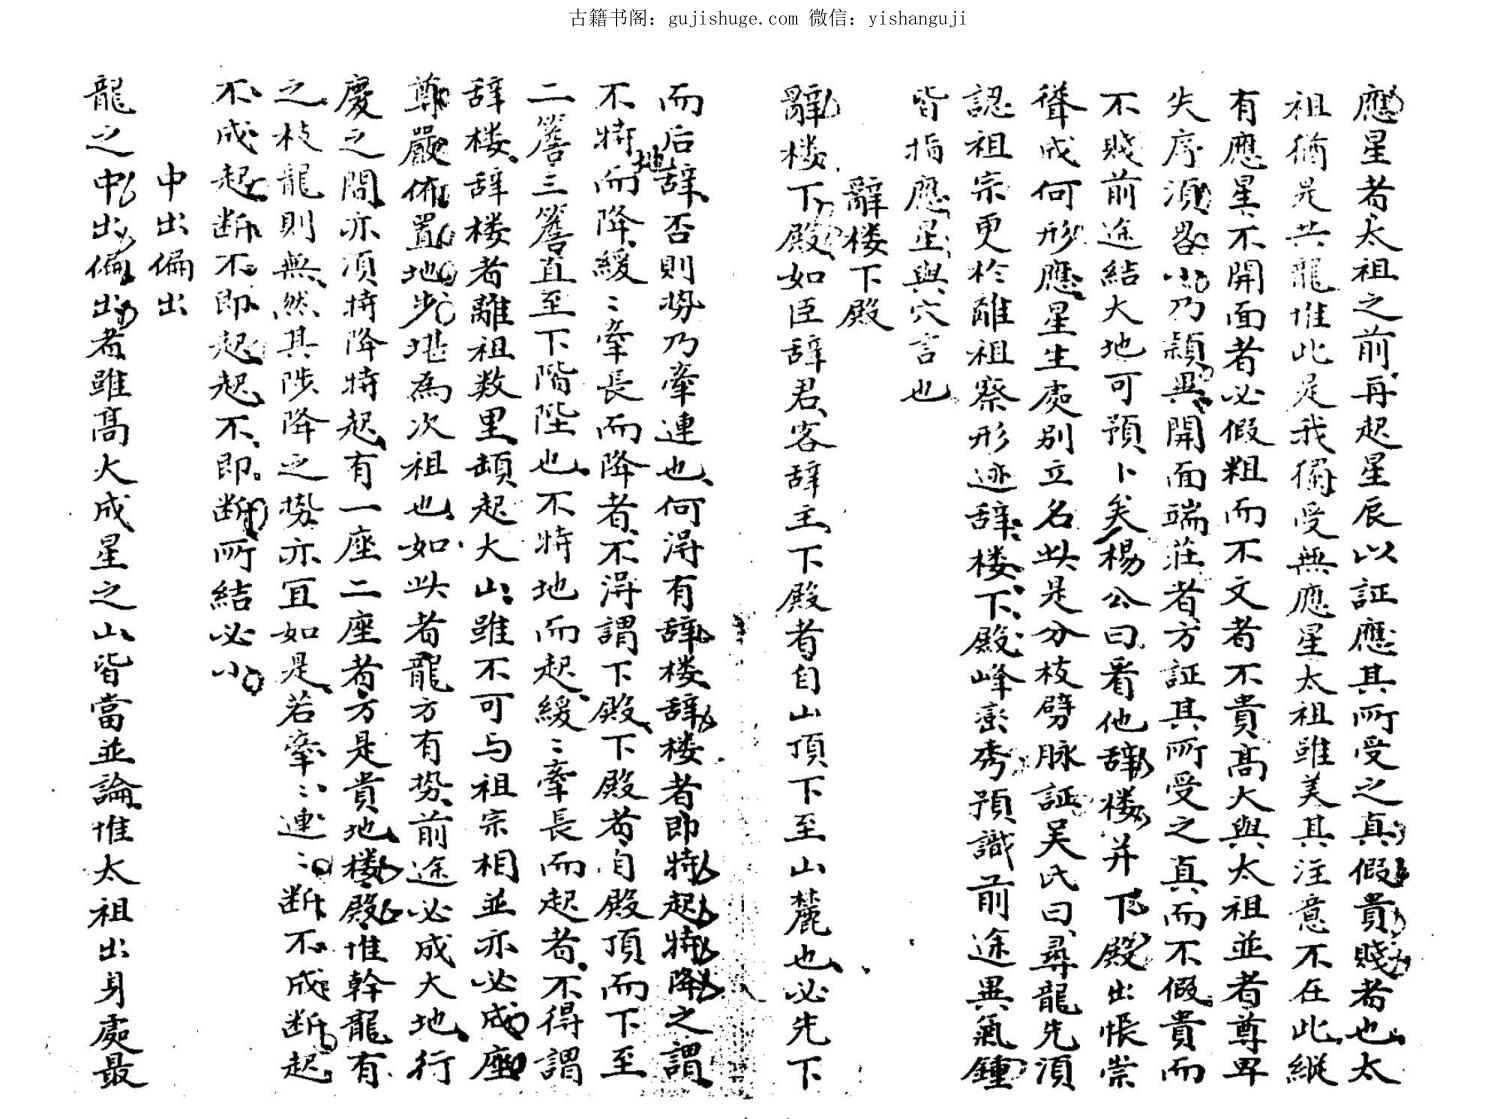 古籍书阁：gujishuge.com 微信：yishanguji
應星者太祖之前再起星辰以証應其所受之真假貴賤者也太
祖猶是共龍惟此是我獨受無應星太祖雖美其注意不在此縱
有應星不開面者必假粗而不文者不貴高大與太祖並者尊卑
失序須畧小乃穎異開面端莊者方証其所受之真而不假貴而
不賤前途結大地可預卜矣楊公曰看他辞楼并下殿出帳崇
聳成何形應星生處別立名此是分枝劈脉証吴氏曰尋龍先須
認祖宗更於離祖察形迹辞楼下殿峰巒秀預識前途異氣鍾
皆指應星與穴言也
辭楼下殿
辭楼下殿如臣辞君客辞主下殿者自山頂下至山麓也必先下
而后辞否則势乃牵連也何淂有辞楼辞楼者即特起特降之謂
不特地而降緩〻牵長而降者不淂謂下殿下殿者自殿頂而下至
二簷三簷直至下階陛也不特地而起緩〻牵長而起者不得謂
辞楼辞楼者離祖数里頓起大山雖不可与祖宗相並亦必成座
尊嚴佈置地步堪為次祖也如此者龍方有势前途必成大地行
慶之間亦須特降特起有一座二座者方是貴地楼殿惟幹龍有
之枝龍則無然其陟降之勢亦宜如是若牵〻連〻断不成断起
不成起断不即起起不即断所結必小
中出偏出
龍之中出偏出者雖高大成星之山皆當並論惟太祖出身處最